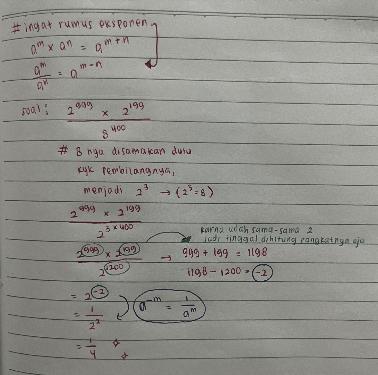 # ingat rumus eksponen
a^m x a^n = a^m+n
a^m/a^n = a^m-n
soal: 2^999 x 2^199 / 8^400
# 8 nya disamakan dulu
kyk pembilangnya,
menjadi 2^3 → (2^3 = 8)
2^999 x 2^199 / 2^3x400
karna udah sama-sama 2
jadi tinggal dihitung pangkatnya aja
2^999 x 2^199 / 2^1200 → 999 + 199 = 1198
1198 - 1200 = -2
= 2^-2
a^-m = 1/a^m
= 1/2^2
= 1/4